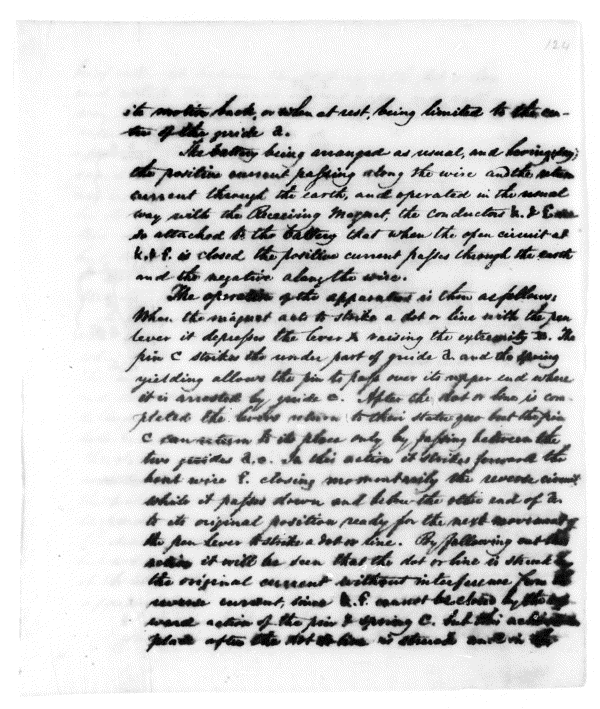 124
its motion back, or when at rest, being limited to the cen-
tre of the guide a.
The battery being arranged as usual, and having say,
the positive current passing along the wire and the return
current through the earth, and operated in the usual
way with the Receiving Magnet, the conductors & E are
so attached to the battery that when the open circuit at
& E. is closed the positive current passes through the earth
and the negative along the wire.
The operation of the apparatus is then as follows:
When the magnet acts to strike a dot or line with the pen
lever it depresses the lever raising the extremity The
pin C strikes the under part of guide a. and the spring
yielding allows the pin to pass over its upper end where
it is arrested by guide c. After the dot or line is com-
pleted the levers return to their statu quo but the pin
C can return to its place only by passing between the
two guides a. c. In this action it strikes forward the
bent wire E. closing momentarily the reverse circuit
while it passes down and below the other end of a.
to its original position ready for the next movement of
the pen lever to strike a dot or line. By following out this
action it will be seen that the dot or line is struck by
the original current without interference from the
reverse current, since E. cannot be closed by the up-
ward action of the pin & spring C. but this
place after the dot or line is struck and in the